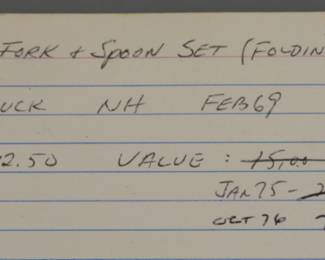 FORK + SPOON SET (FOLDIN
UCK NH FEB 69
2.50 VALUE : 15.00
JAN 75 - 2
OCT 76